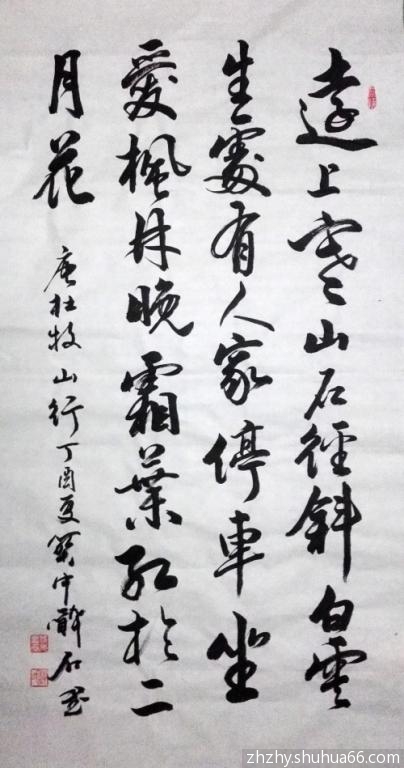 遠上寒山石徑斜白雲
生處有人家停車坐
愛楓林晚霜葉紅於二
月花
唐杜牧山行丁酉夏 中 石
zhzhy.shuhua66.com